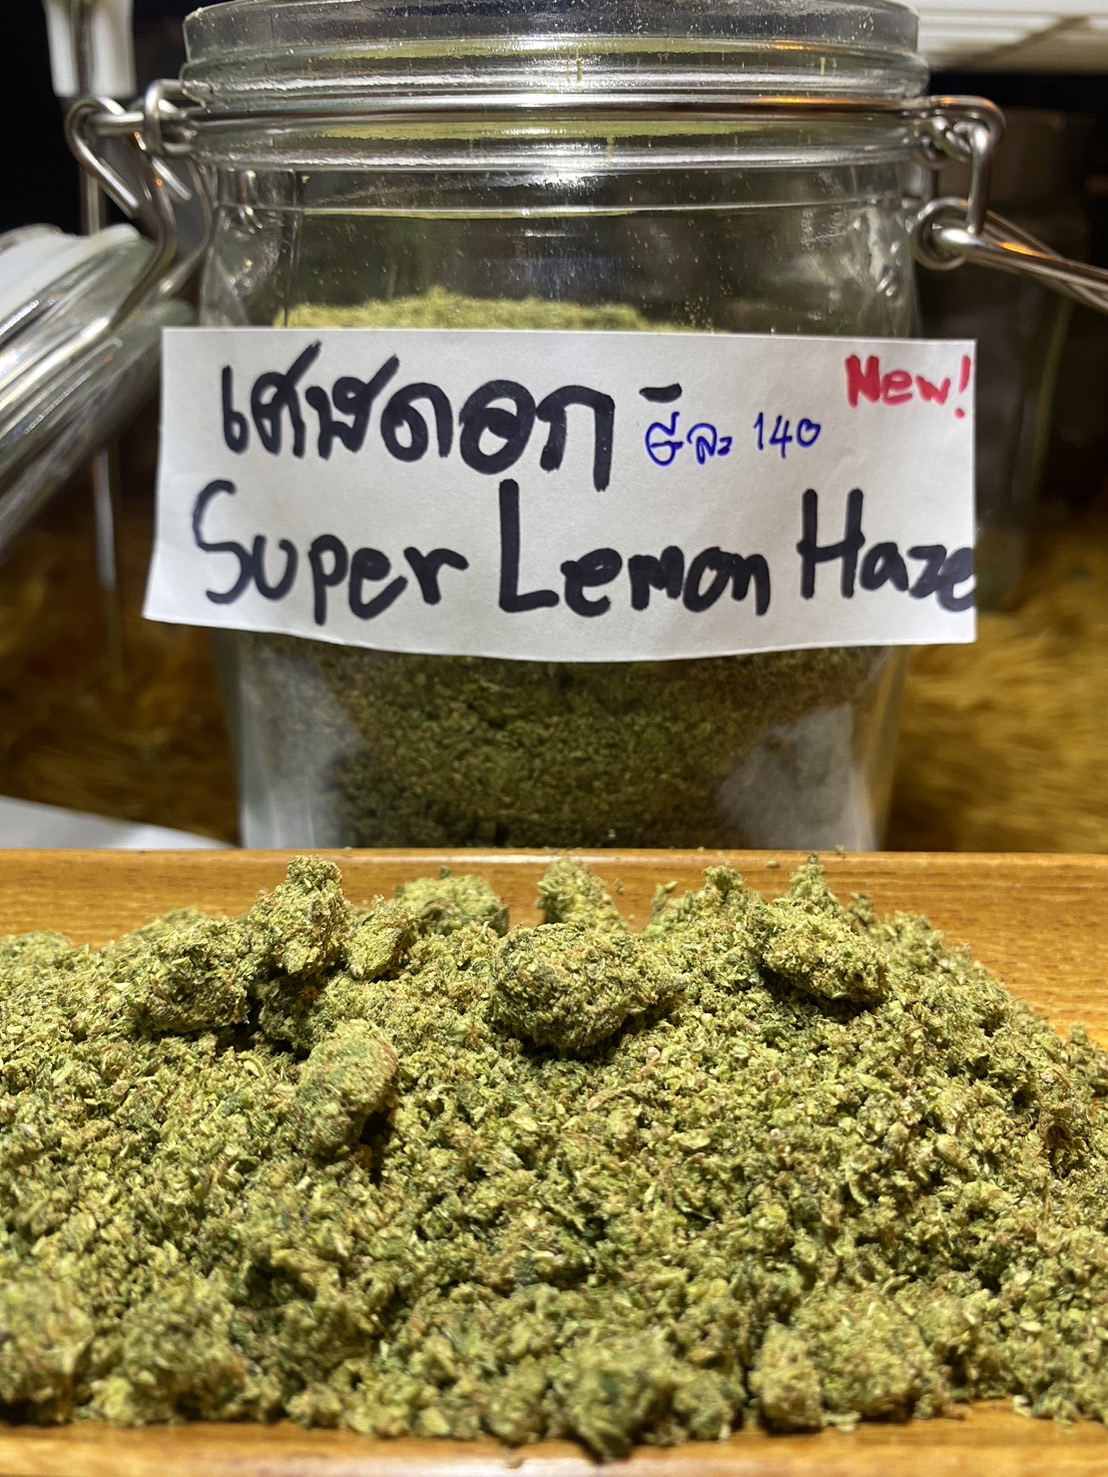 เศษดอก - จีละ 140 New!
Super Lemon Haze